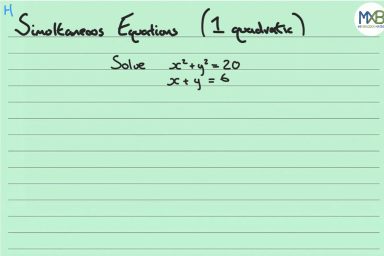 H
Simultaneous Equations (1 quadratic)
MXB
Solve x² + y² = 20
x + y = 6